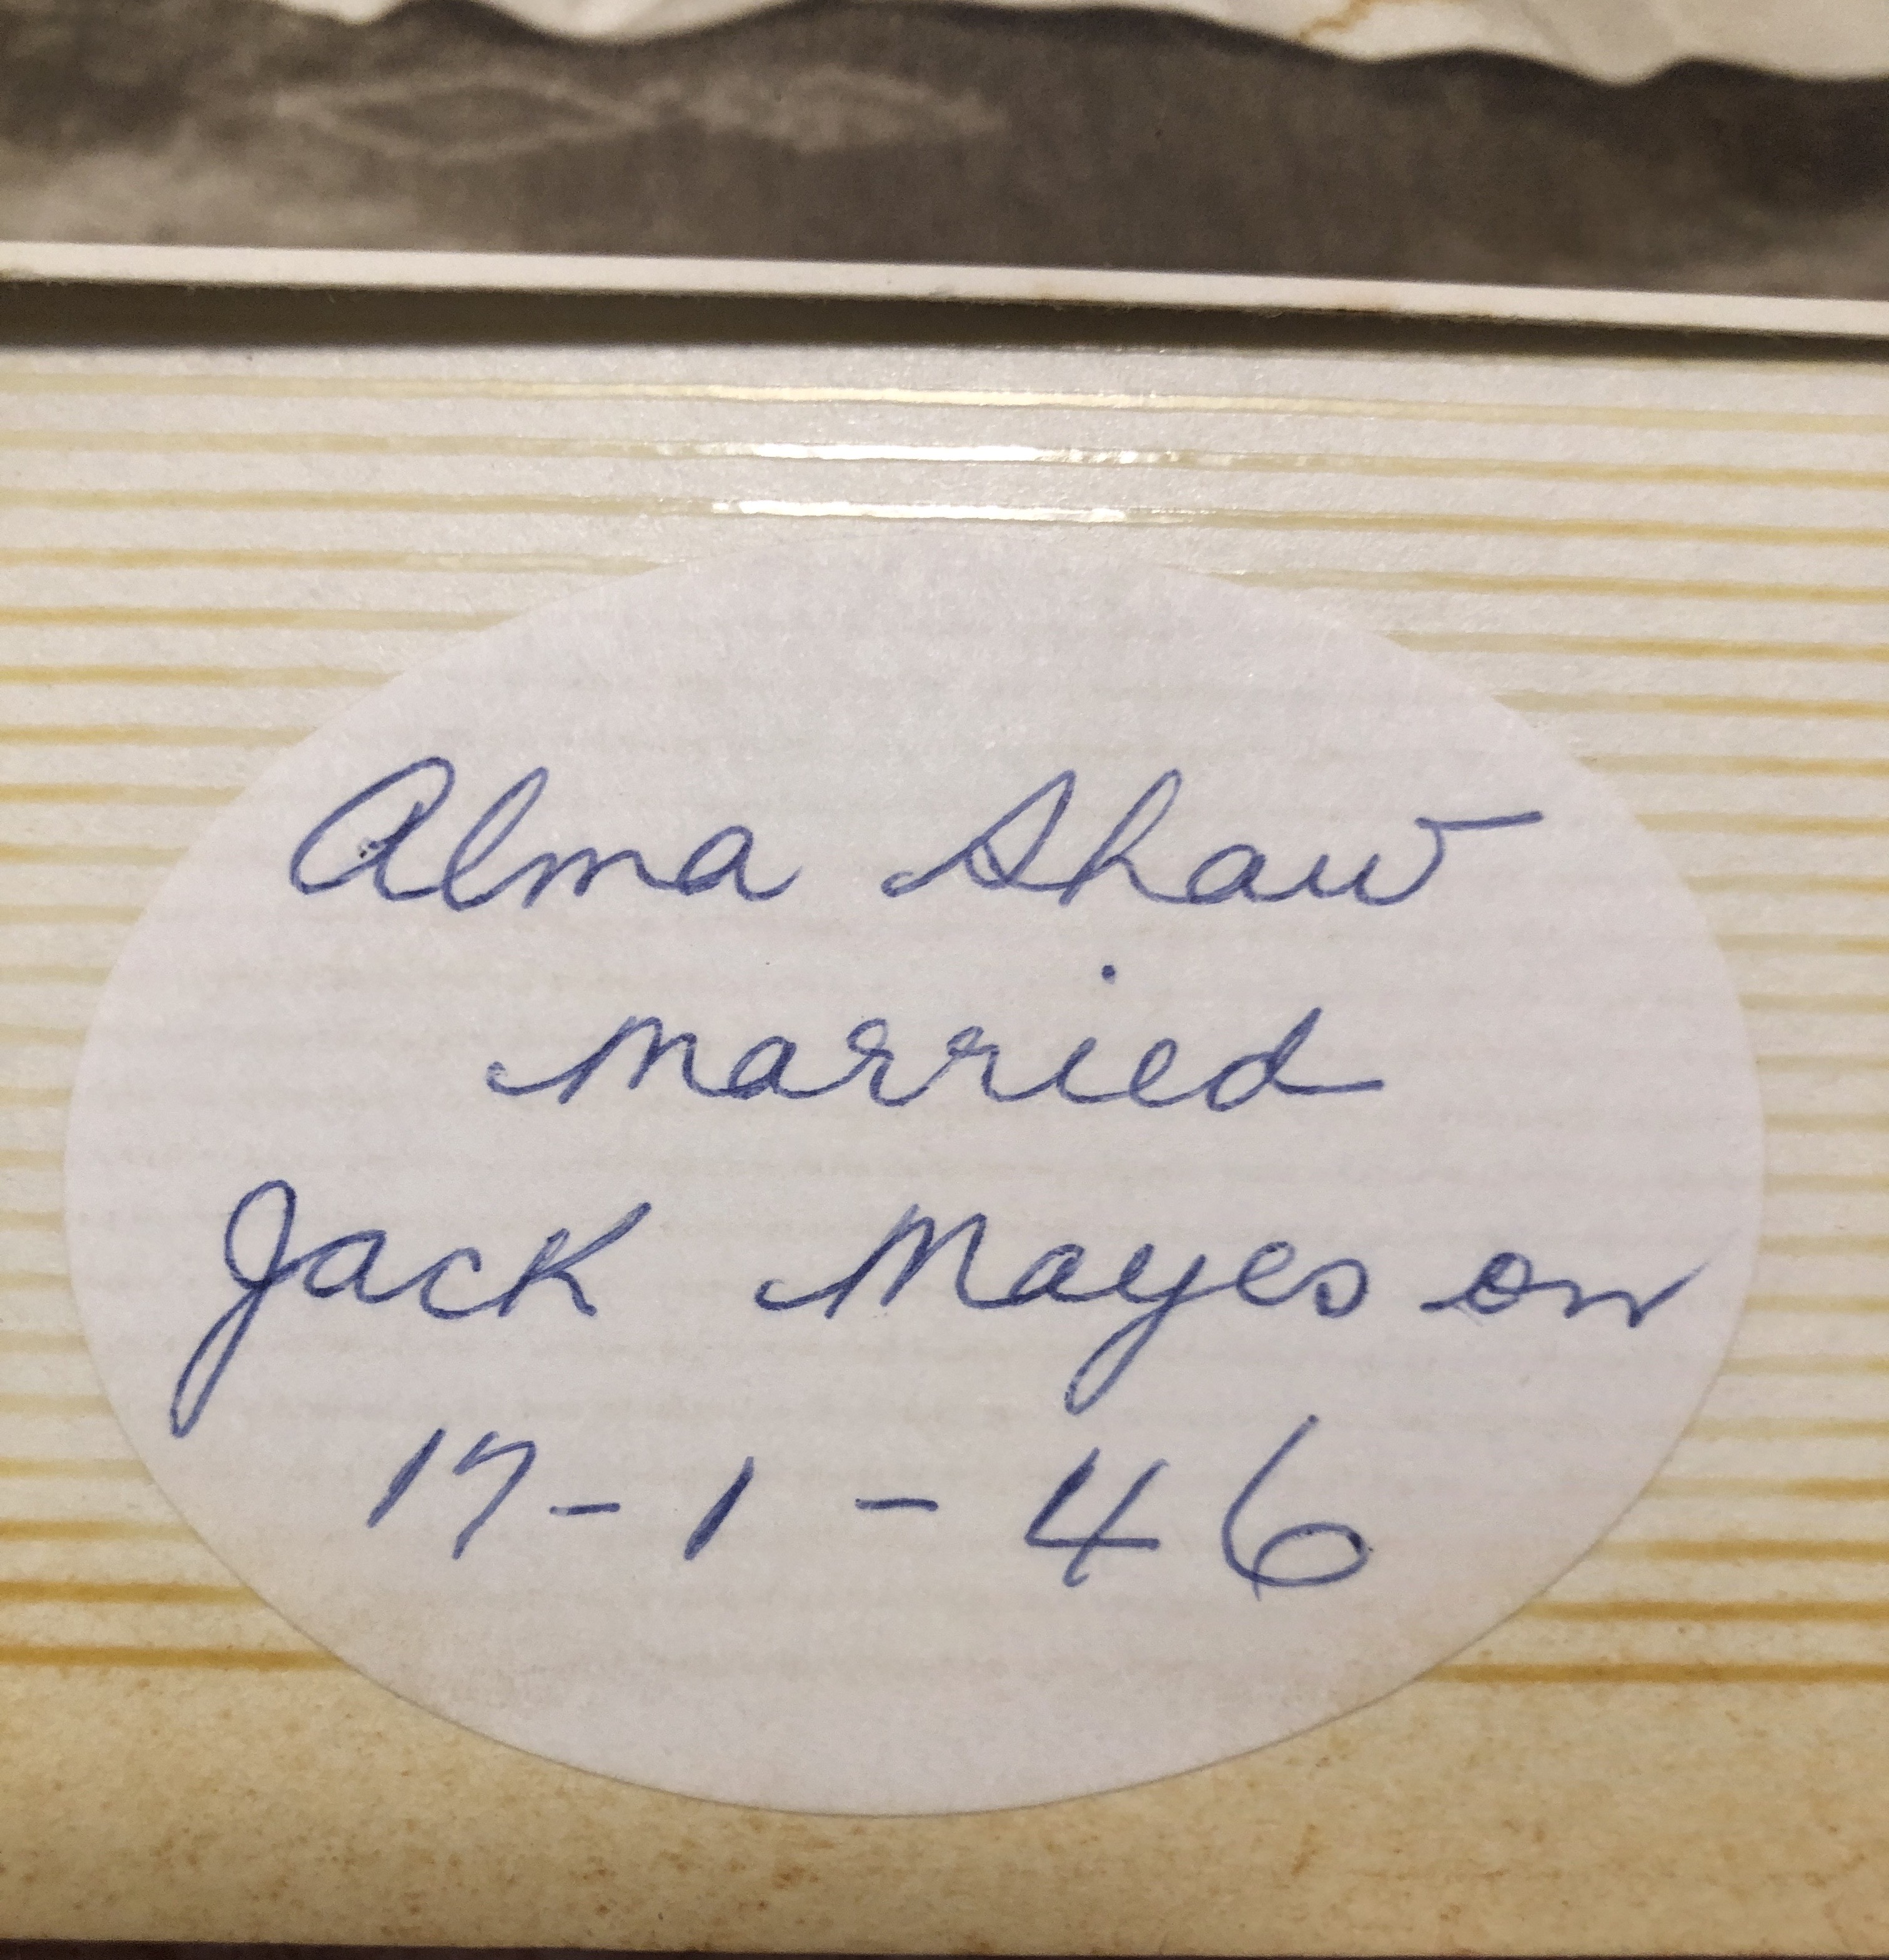 Alma Shaw
married
Jack Mayes on
17-1-46